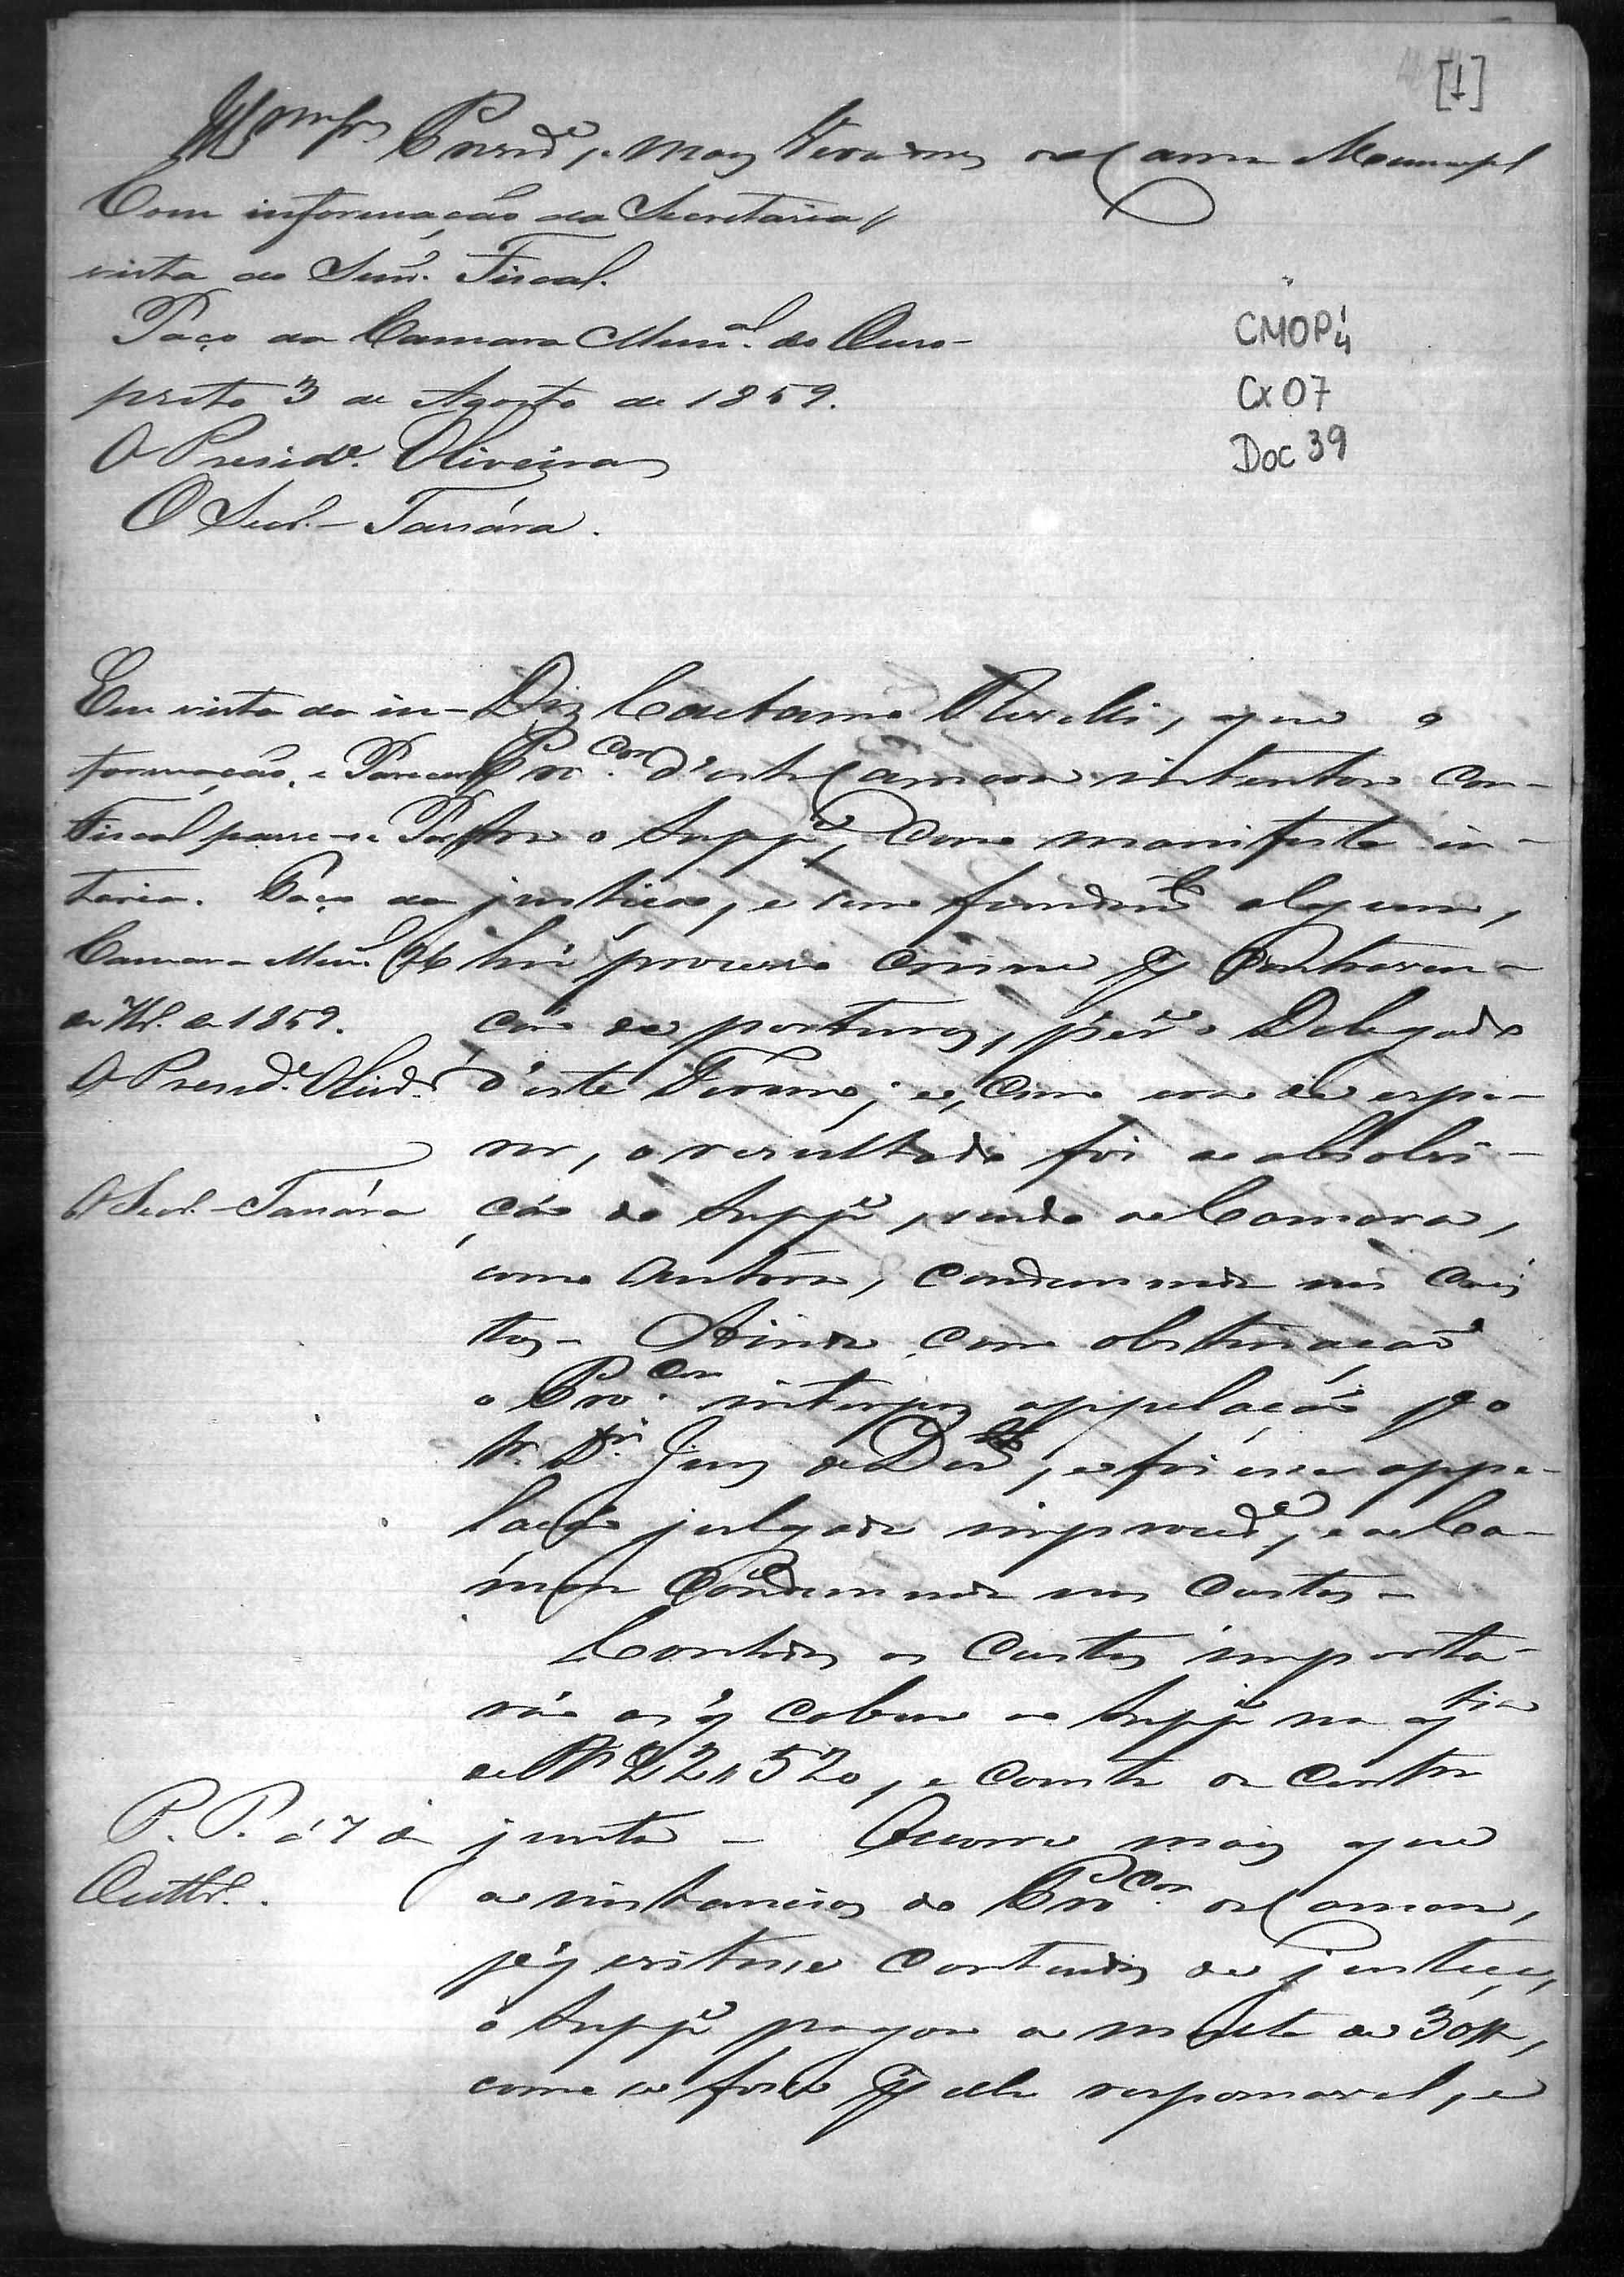 [1]
Ill.mos Snrs Presid.e, e mais Vereadores da Camara Municipal
Com informação da Secretaria,
vista ao Senr. Fiscal.
Paço da Camara Mun.al do Ouro-
preto 3 de Agosto de 1859.
O Presid.e Oliveira
O Secr.-
CMOP
Cx 07
Doc 39
Em vista da in-
formação, e Parecer
Fiscal passe-se Por-
taria. Paço da
Camara Mun.al 26
de 7br.o de 1859.
O Presid.e
O Secr.-
P. P. a 7 de
Outbr.o.
Diz Caetano, que o
Pro.cor d'esta Camara intentou con-
tra o Supp.e, com manifesta in-
justiça, e sem fundam.to algum,
hum processo crime por contraven-
ção de posturas, per.e o Delegado
d'este Termo; e, como era de espe-
rar, o resultado foi a absolvi-
ção do Supp.e, sendo a Camara,
como Autora, condemnada nas cus-
tas - Ainda com obstinação
o Pro.cor interpoz appelação p.a o
Sr. Dr. Juiz de Dir.to, e foi essa appe-
lação julgada improced.e, e a Ca-
mara condemnada nas custas -
Contadas as custas importa-
rão as q cabem ao Supp.e na q.tia
de Rs 22,,520, e consta da conta
junta - Occorre mais que
a instancias do Pro.cor da Camara,
p.a q evitasse contendas de justiça,
o Supp.e pagou a multa de 30$,
como se fosse por ella responsavel, e